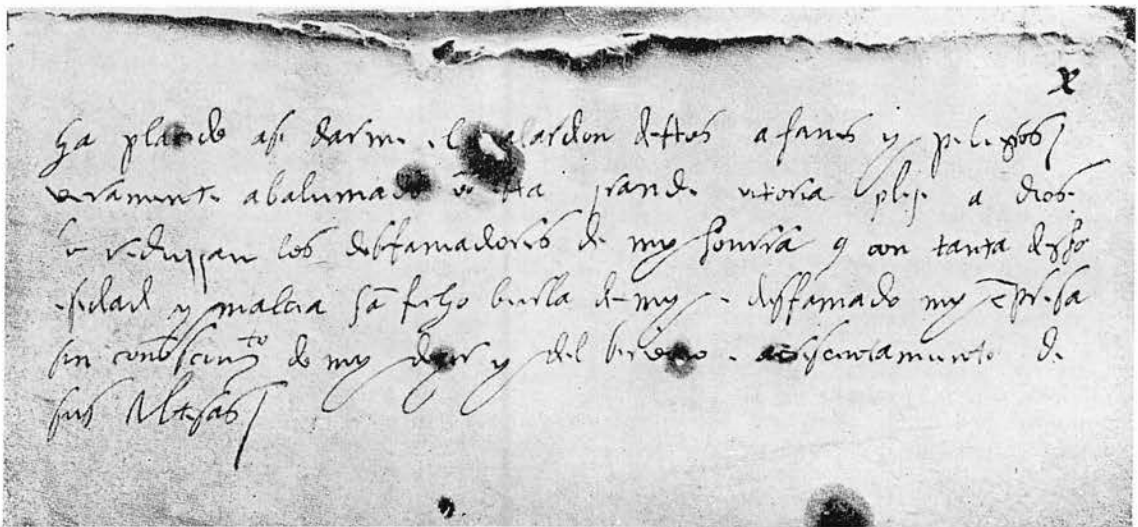 x
ha placido asi darme el galardon destos afanes y peligros
veramente abalumado co esta grande vitoria plega a dios
se reduzgan los disfamadores de my honrra q con tanta desho
estidad y malicia hã fecho burla de my e disfamado my ẽpresa
sin conoscimto de my dezir y del servicio e acrescentamiento de
sus Altesas